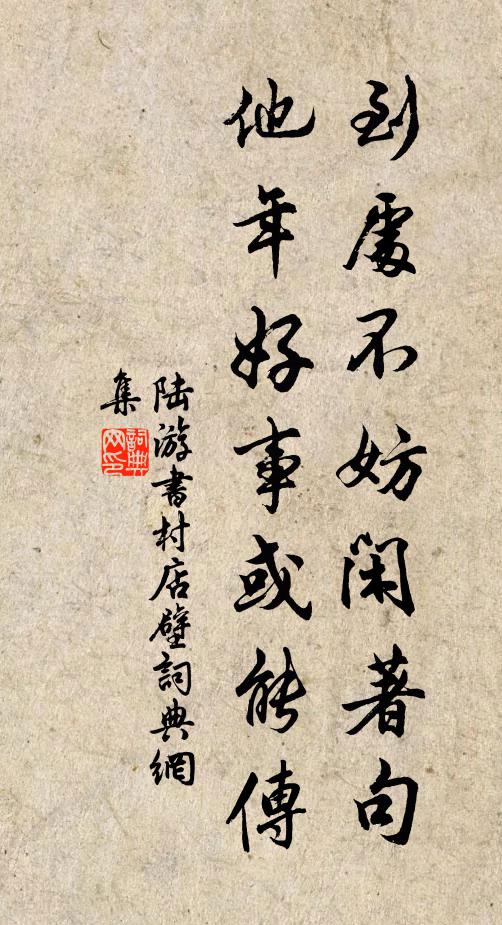 到處不妨閑著句
他年好事或能傳
陆游書村店壁詞典網
集
詞典
网印